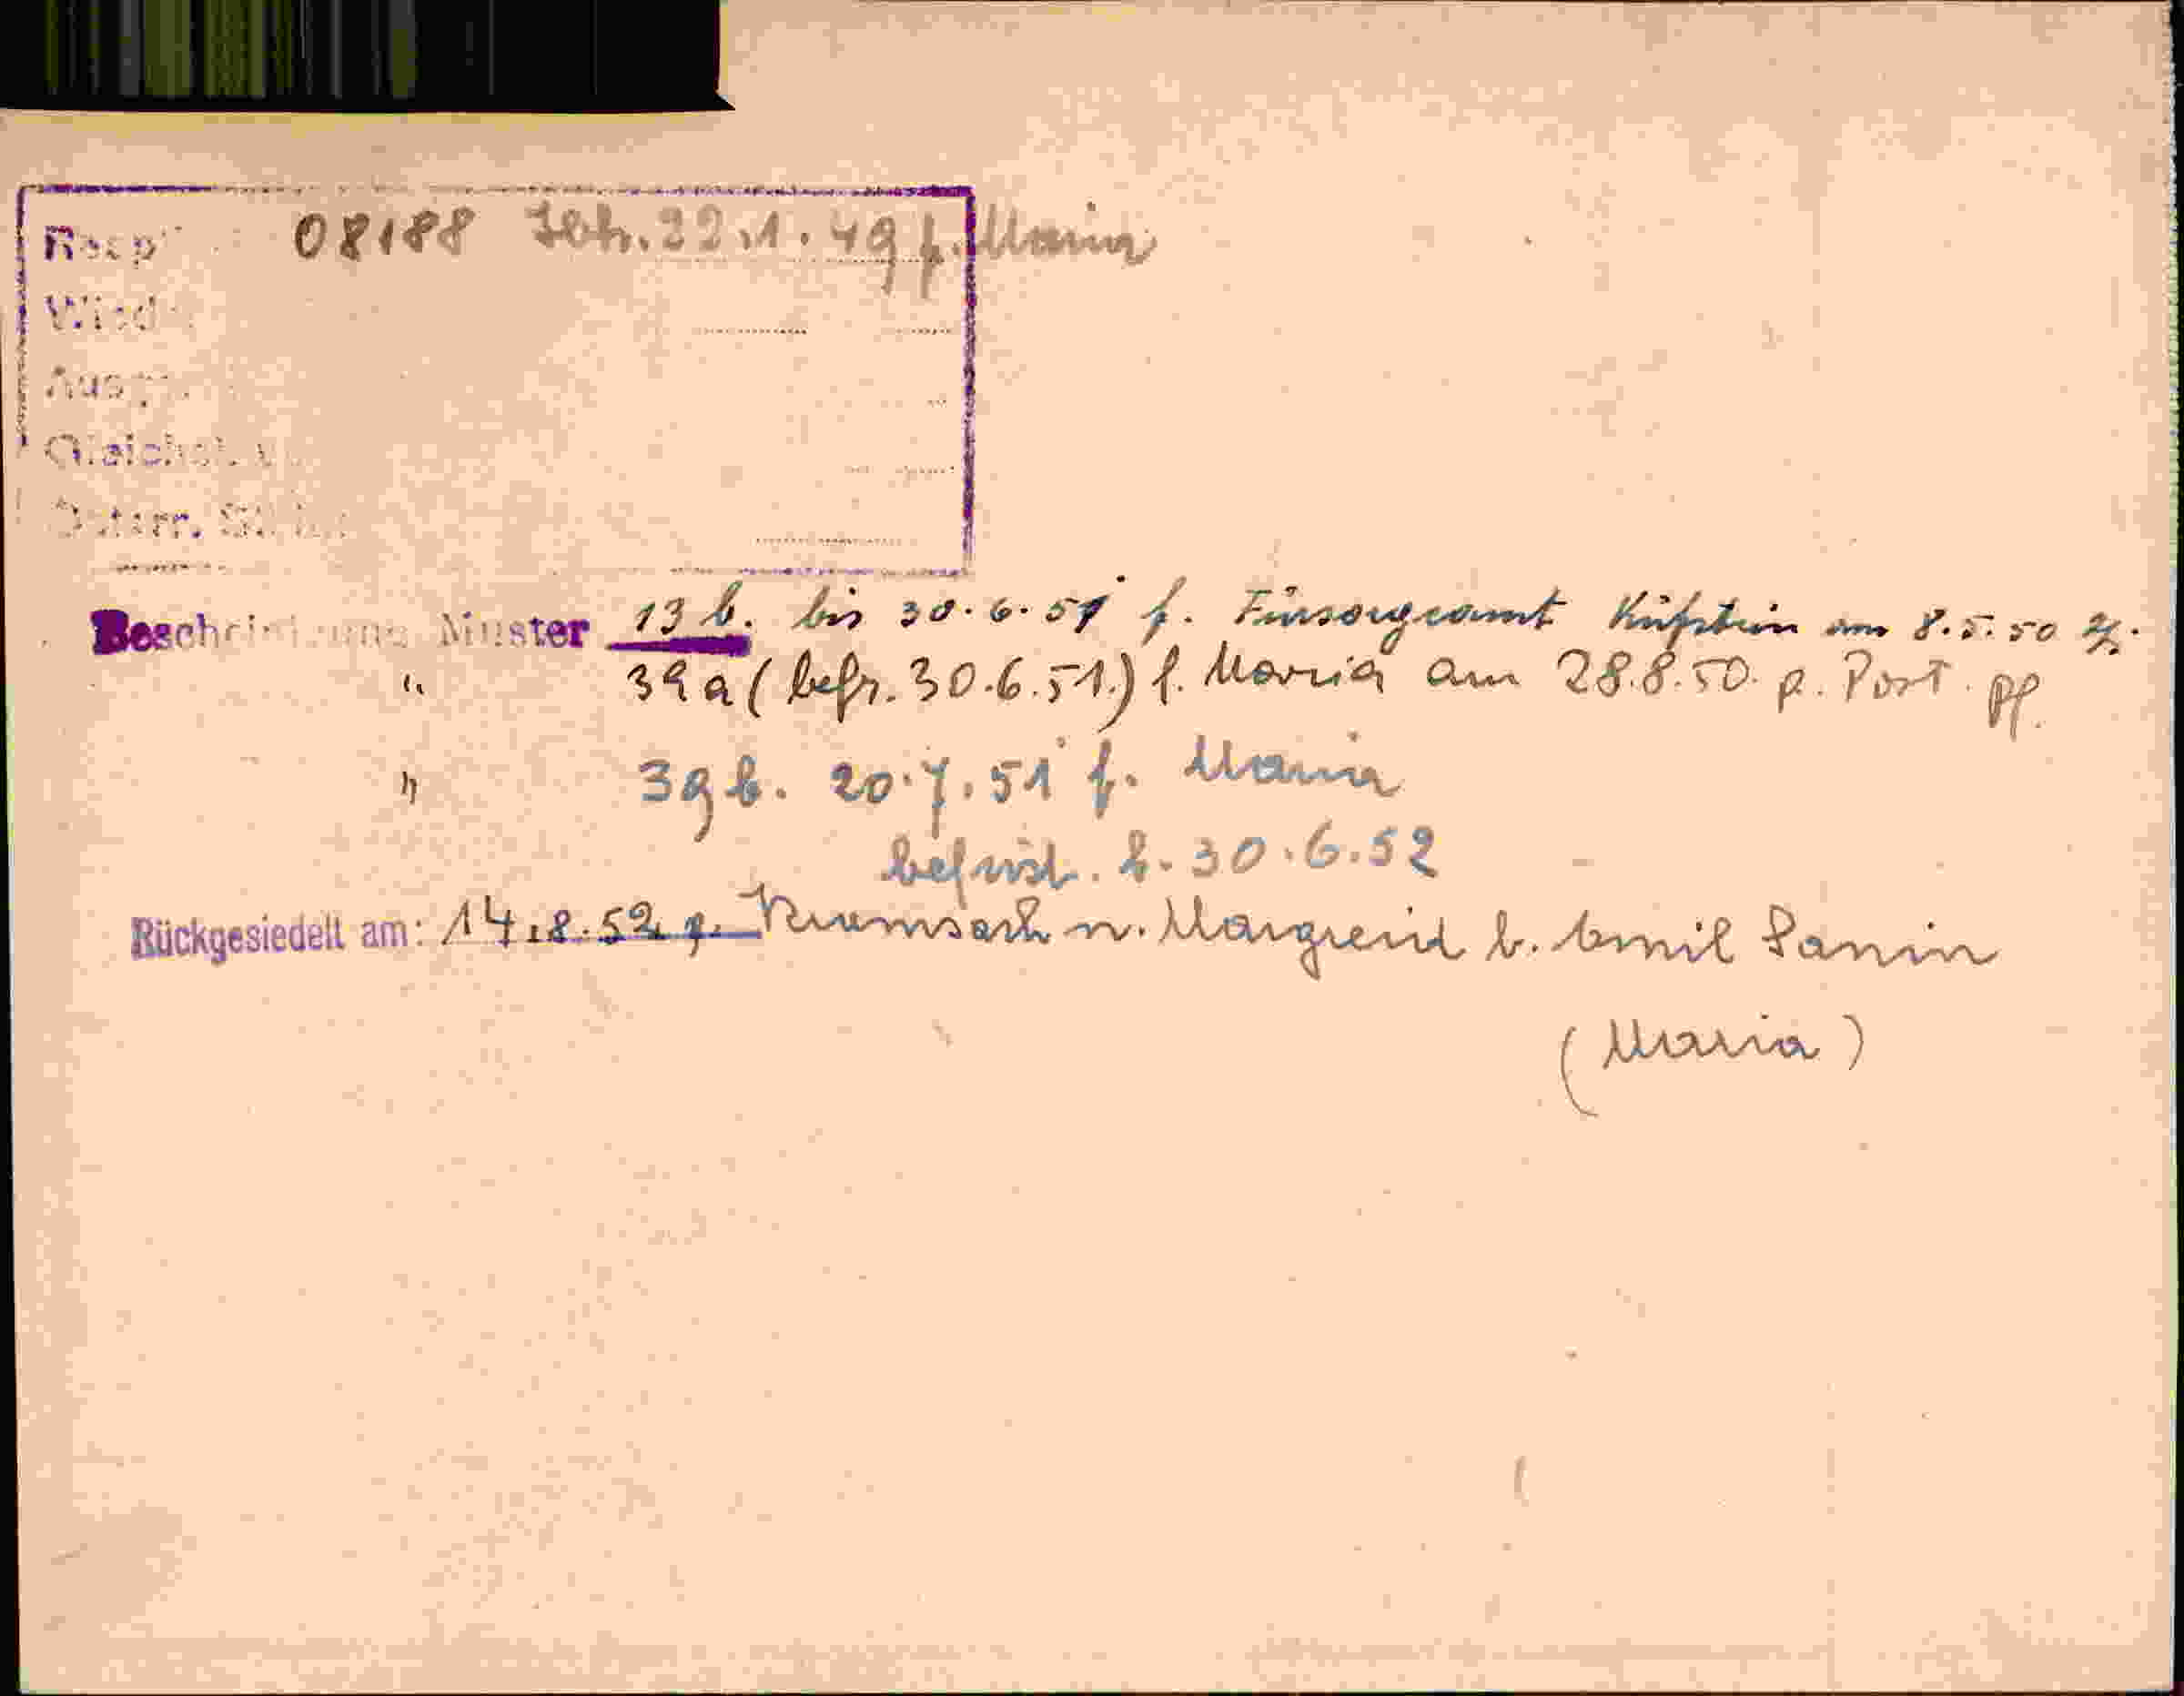 08188 Ibk. 22.1.49 f. Maria
Bescheinigung Muster 13 b. bis 30.6.51 f. Fürsorgeamt Kufstein am 8.5.50
" 39a (befr. 30.6.51.) f. Maria am 28.8.50. p. Post. pf.
" 39 b. 20.7.51 f. Maria
befrist. b. 30.6.52
Rückgesiedelt am: 14.8.52 v. Kramsach n. Margreid b. Emil Sanin
(Maria)